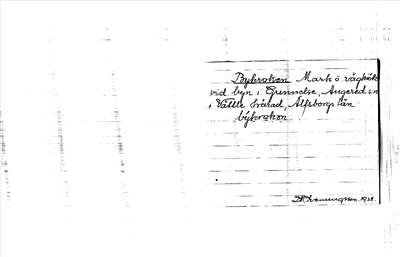 Bykroken Mark ö. vägkök
vid byn i Grinnolse, Angered sn
i Vättle härad, Älfsborgs län
býkrokon
1928.